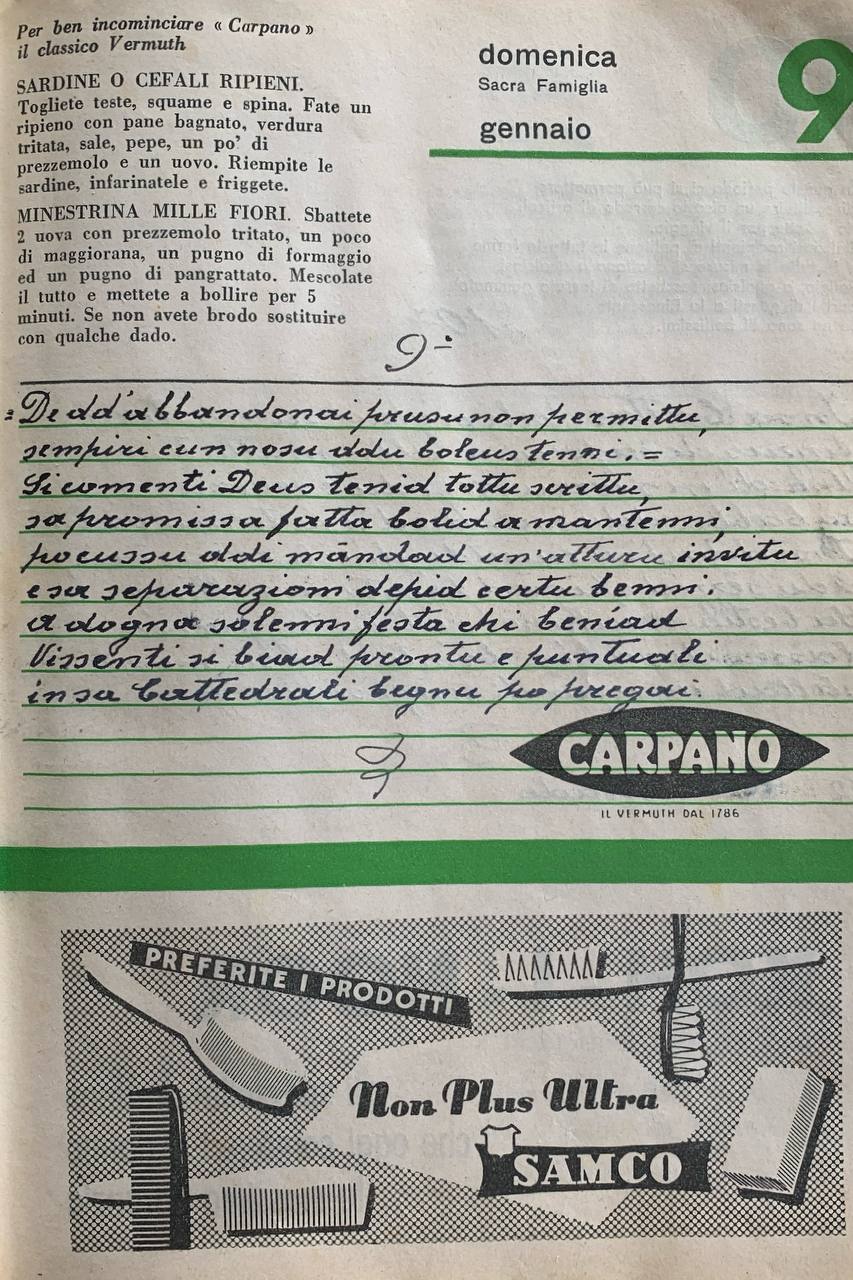 Per ben incominciare « Carpano »
il classico Vermuth
SARDINE O CEFALI RIPIENI.
Togliete teste, squame e spina. Fate un
ripieno con pane bagnato, verdura
tritata, sale, pepe, un po' di
prezzemolo e un uovo. Riempite le
sardine, infarinatele e friggete.
MINESTRINA MILLE FIORI. Sbattete
2 uova con prezzemolo tritato, un poco
di maggiorana, un pugno di formaggio
ed un pugno di pangrattato. Mescolate
il tutto e mettete a bollire per 5
minuti. Se non avete brodo sostituire
con qualche dado.
domenica
Sacra Famiglia
gennaio
9
9=
= De dd'abbandonai prusu non permittu,
sempiri cun nosu ddu boleus tenni. =
Sicomenti Deus tenid tottu scrittu,
sa promissa fatta bolid a mantenni,
po cussu ddi mandad un'atturu invitu
e sa separazioni depid certu benni.
a dogna solenni festa chi beniad
Vissenti si biad prontu e puntuali
in sa Cattedrali begnu po pregai.
CARPANO
IL VERMUTH DAL 1786
PREFERITE I PRODOTTI
Non Plus Ultra
SAMCO